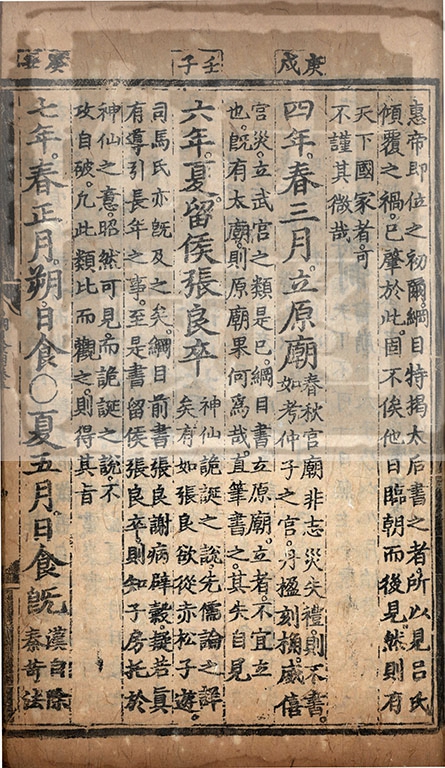 庚戌
壬子
癸丑
惠帝即位之初爾。綱目特揭太后書之者。所以見吕氏
傾覆之禍。已肇於此。固不俟他日臨朝而後見。然則有
天下國家者。可
不謹其微哉
四年。春三月。立原廟
春秋宫廟非志災失禮。則不書。
如考仲子之宫。丹楹刻桷。威僖
宫災。立武宫之類是已。綱目書立原廟。立者。不宜立
也。既有太廟。則原廟果何為哉。直筆書之。其失自見
六年。夏。留侯張良卒
神仙詭誕之說。先儒論之詳
矣。有如張良欲從赤松子遊。
司馬氏亦既及之矣。綱目前書張良謝病辟糓。擬若真
有導引長年之事。至是書留侯張良卒。則知子房托於
神仙之意。昭然可見。而詭誕之說。不
攻自破。凡此類比而觀之。則得其旨
七年。春正月。朔。日食○夏五月。日食旣
漢自除
秦苛法